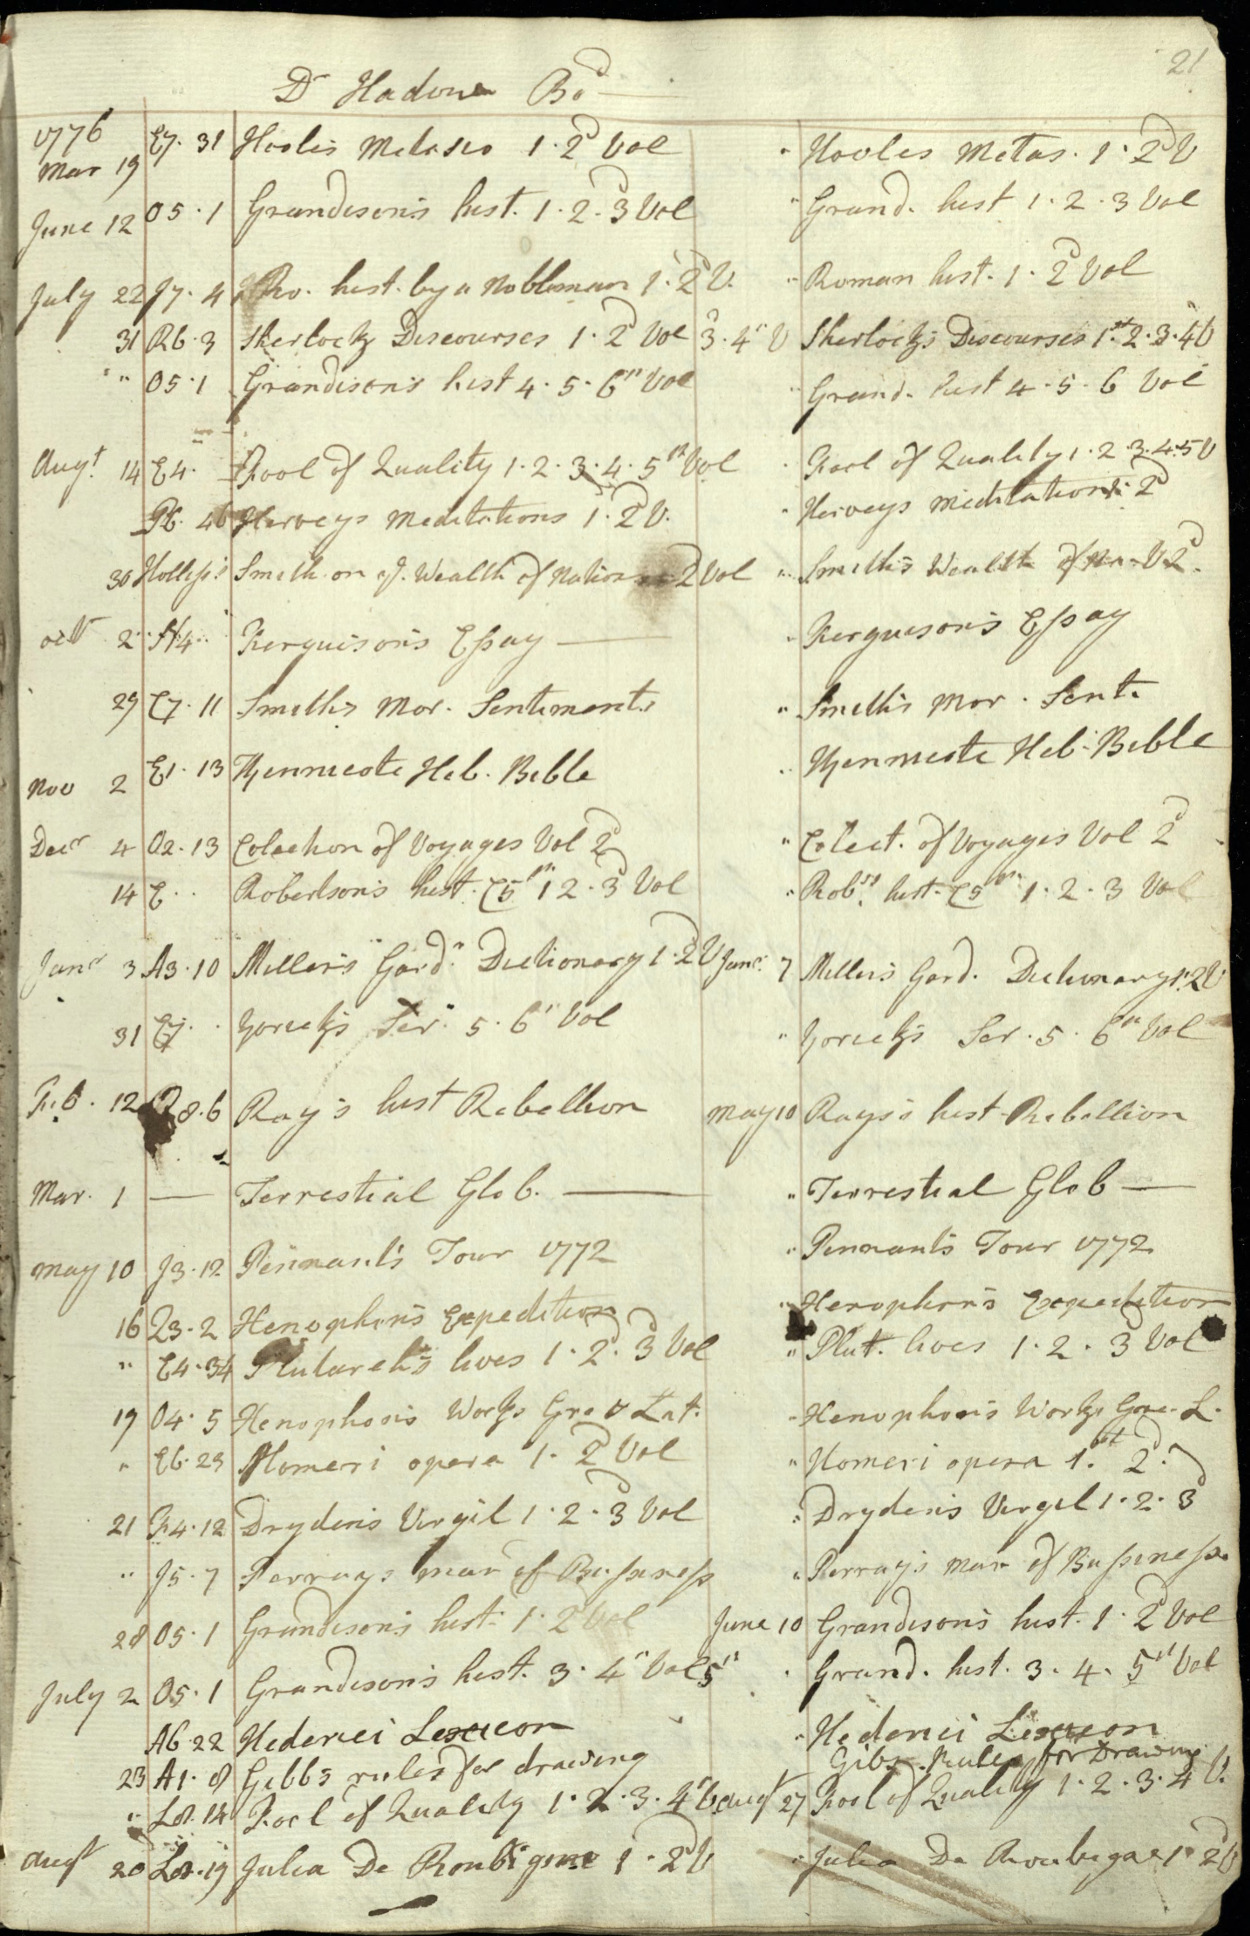 21
Dr Hadow Bo
1776
Mar 19 E7. 31 Hooles Metasio 1. 2d Vol " Hooles Metas. 1. 2d V
June 12 O5. 1 Grandison's hist. 1. 2. 3d Vol " Grand. hist 1. 2. 3 Vol
July 22 J7. 4 Ro. hist. by a Nobleman 1. 2d V. " Roman hist. 1. 2d Vol
31 R6. 3 Sherlocks Discourses 1. 2d Vol 3d. 4th V Sherlock's Discourses 1st 2. 3. 4 V
" O5. 1 Grandison's hist 4. 5. 6th Vol " Grand. hist 4. 5. 6 Vol
Augt. 14 E4. Fool of Quality 1. 2. 3. 4. 5th Vol " Fool of Quality 1. 2. 3. 4. 5 V
P6. 46 Herveys Meditations 1. 2d V. " Herveys Meditations 2d
30 Smith on ye. Wealth of Nations 2d Vol " Smith's Wealth of Na. V 2d.
oct 2 Ferguison's Essay " Ferguison's Essay
29 C7. 11 Smith's Mor. Sentiments " Smith's Mor. Sent.
Nov 2 E1. 13 Kennicote Heb. Bible " Kennicote Heb. Bible
Decr 4 O2. 13 Colection of Voyages Vol 2d " Colect. of Voyages Vol 2d
14 E. Robertson's hist. C5th 1 2. 3d Vol " Robns. hist. C5th 1. 2. 3 Vol
Janr 3 A3. 10 Miller's Gard.n Dictionary 1. 2d V Janr. 7 Miller's Gard. Dictionary 1. 2 V
31 E7. Yorick's Ser. 5. 6th Vol " Yorick's Ser. 5. 6th Vol
Feb. 12 8. 6 Ray's hist Rebellion May 10 Rays's hist Rebellion
Mar. 1 — Terrestial Glob. — " Terrestial Glob —
May 10 J3. 12 Pennant's Tour 1772 " Pennant's Tour 1772
16 Q3. 2 Xenophon's Expedition " Xenophon's Expedition
" E4. 34 Plutarch's lives 1. 2. 3d Vol " Plut. lives 1. 2. 3 Vol
19 O4. 5 Xenophon's Works Gre & Lat. " Xenophon's Works Gre. L.
" E6. 23 Homeri opera 1. 2d Vol " Homeri opera 1.st 2d.
21 F4. 12 Dryden's Virgil 1. 2. 3d Vol " Dryden's Virgil 1. 2. 3d
" J5. 7 Perrays man of Bussiness " Perray's man of Bussiness
28 O5. 1 Grandison's hist. 1. 2d Vol June 10 Grandison's hist. 1. 2d Vol
July 2 O5. 1 Grandison's hist. 3. 4th Vol 5th " Grand. hist. 3. 4. 5th Vol
A6. 22 Hederici Lexicon " Hederici Lexicon
23 A1. 8 Gibbs rules for drawing Gibs. Rules for Drawing
" L8. 14 Fool of Quality 1. 2. 3. 4th V. augt 27 Fool of Quality 1. 2. 3. 4 V.
augt 20 L8. 19 Julia De Roubigne 1. 2d V " Julia De Roubigne 1. 2d V